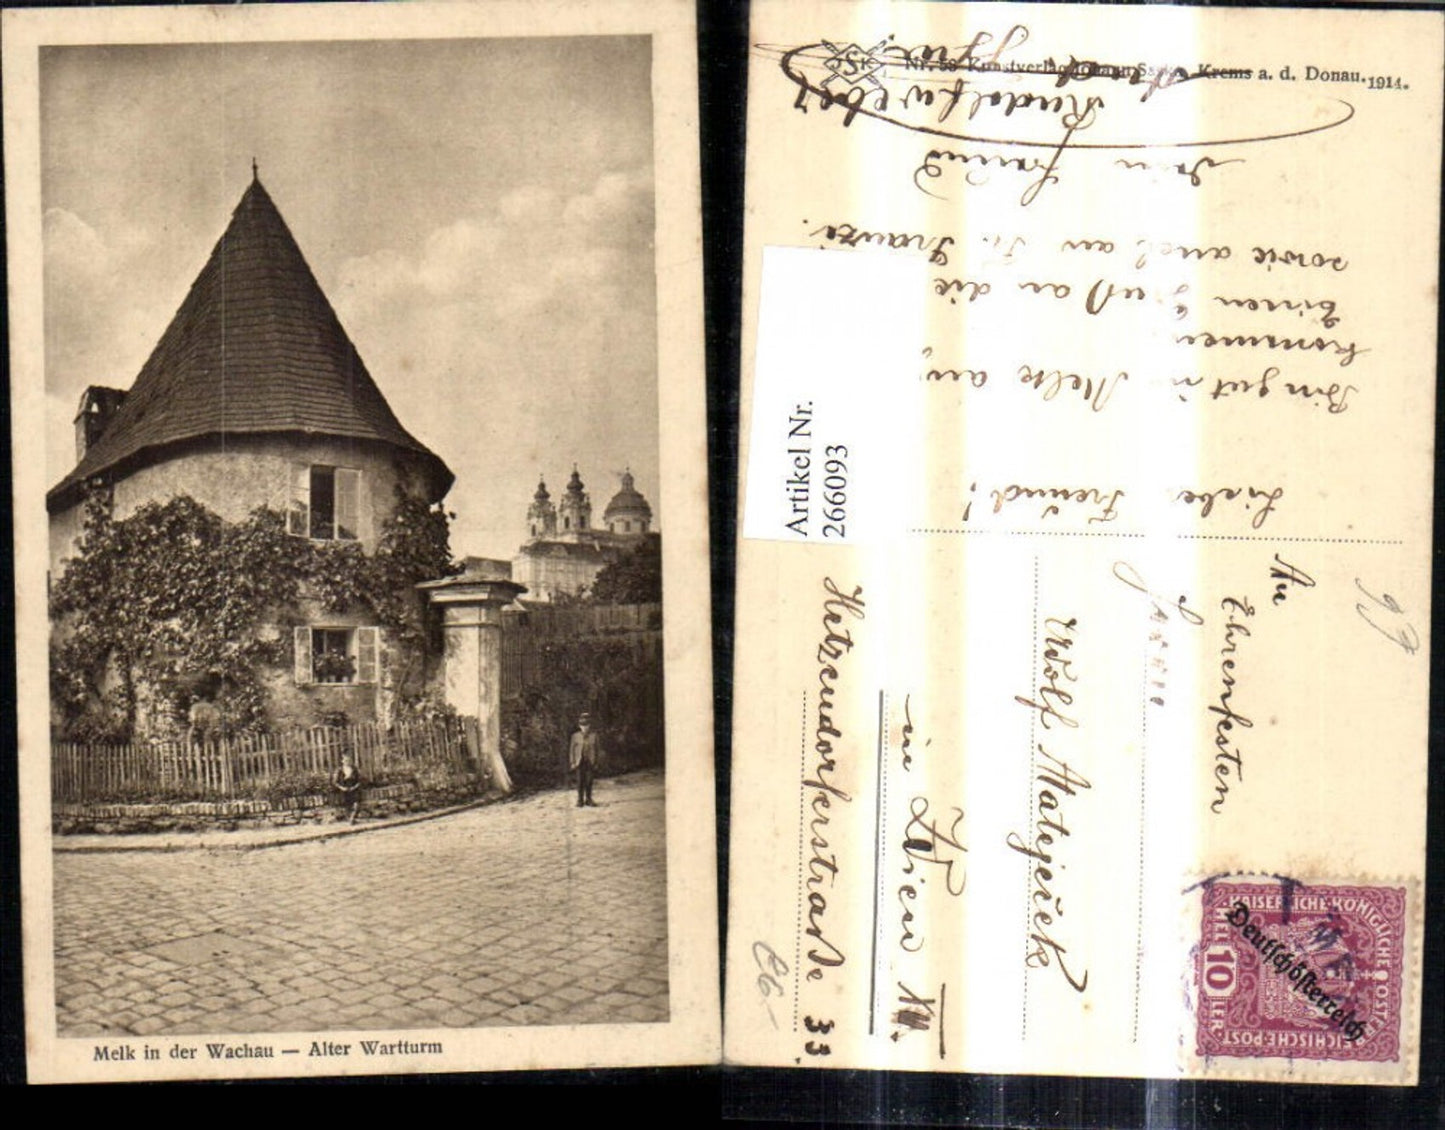 Melk in der Wachau — Alter Wartturm
Nr. 58 Kunstverlag Johann Krems a. d. Donau. 1914.
Artikel Nr.
266093
Lieber Freund!
Bin gut in Melk an,
kommen
Einen Gruß an die
sowie auch an Fr. Franzi.
Dein Freund
Rudolf Weber
An
Ehrenfesten
Wolf Mateječek
in Wien XII.
Hetzendorferstraße 33.
KAISERLICHE KÖNIGLICHE ÖSTERREICHISCHE POST
HELLER
10
Deutschösterreich